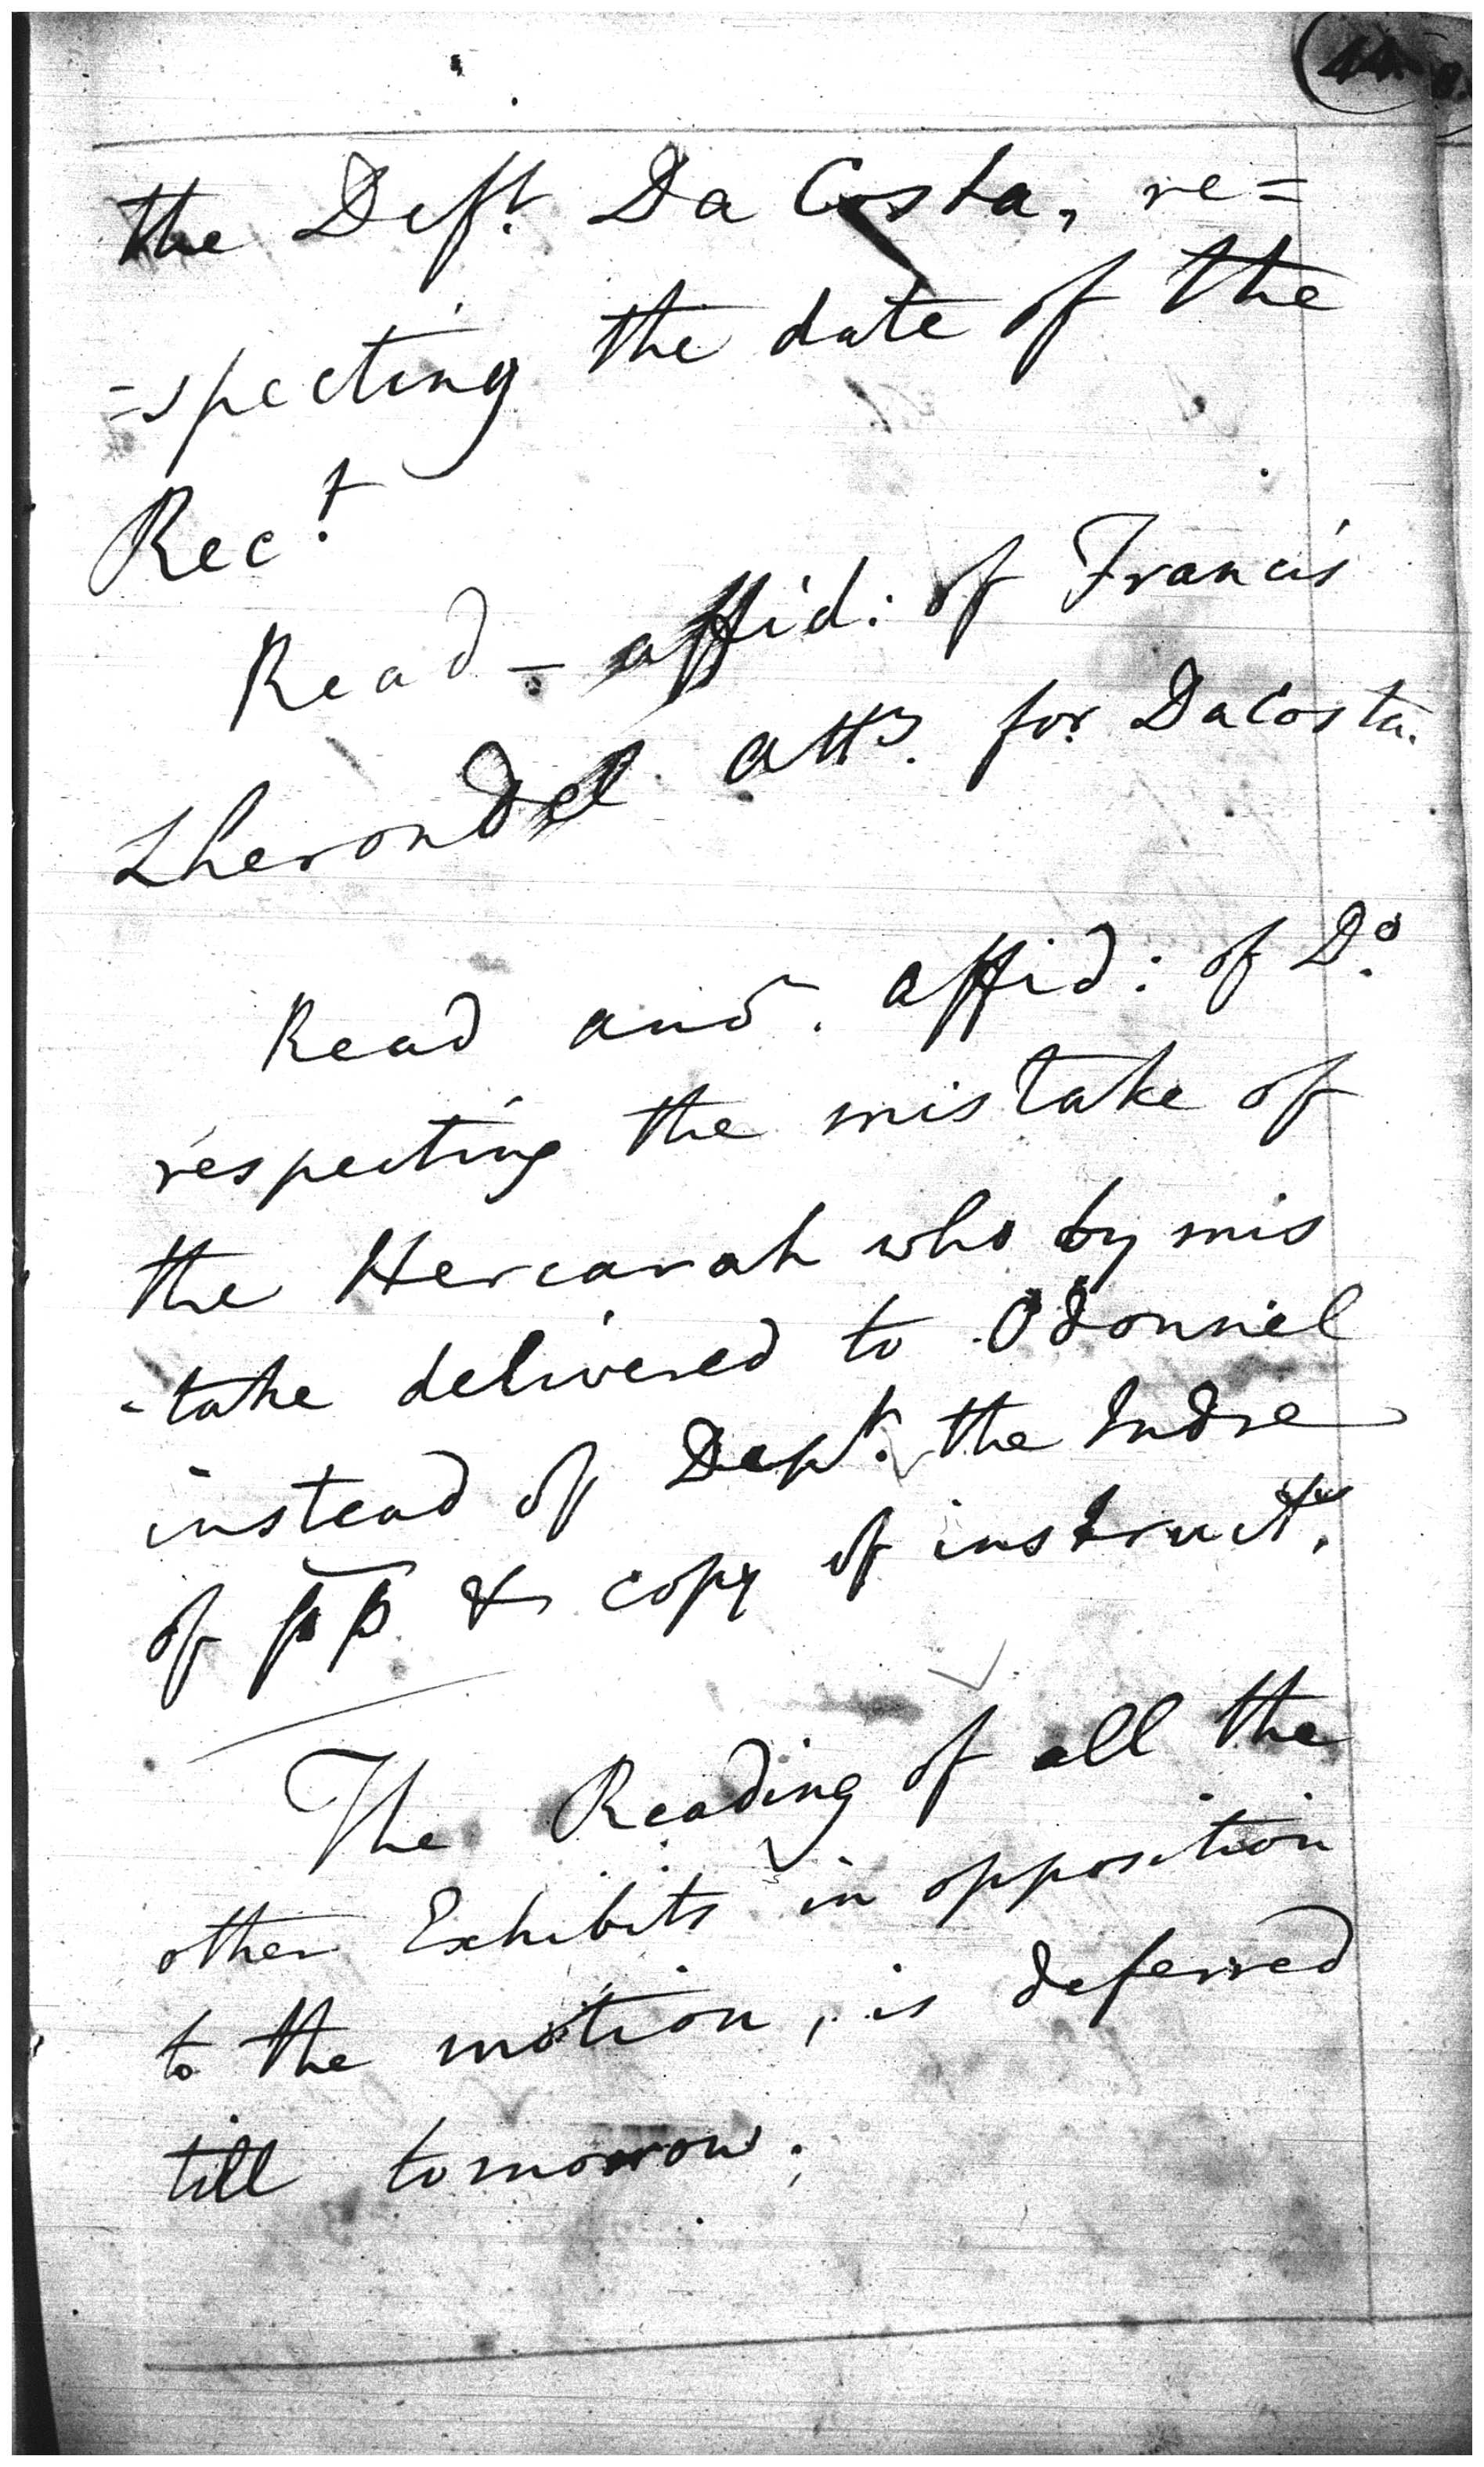 the Deft. Da Costa, re=
=specting the date of the
Rect.
Read - affid: of Francis
Lherondel atty. for DaCosta.
Read anor. affid: of Do.
respecting the mistake of
the Hercarah who by mis
-take delivered to Odonnel
instead of Dept. the Indre
of pp & copy of instructns.
The Reading of all the
other Exhibits in opposition
to the motion, is deferred
till tomorrow.